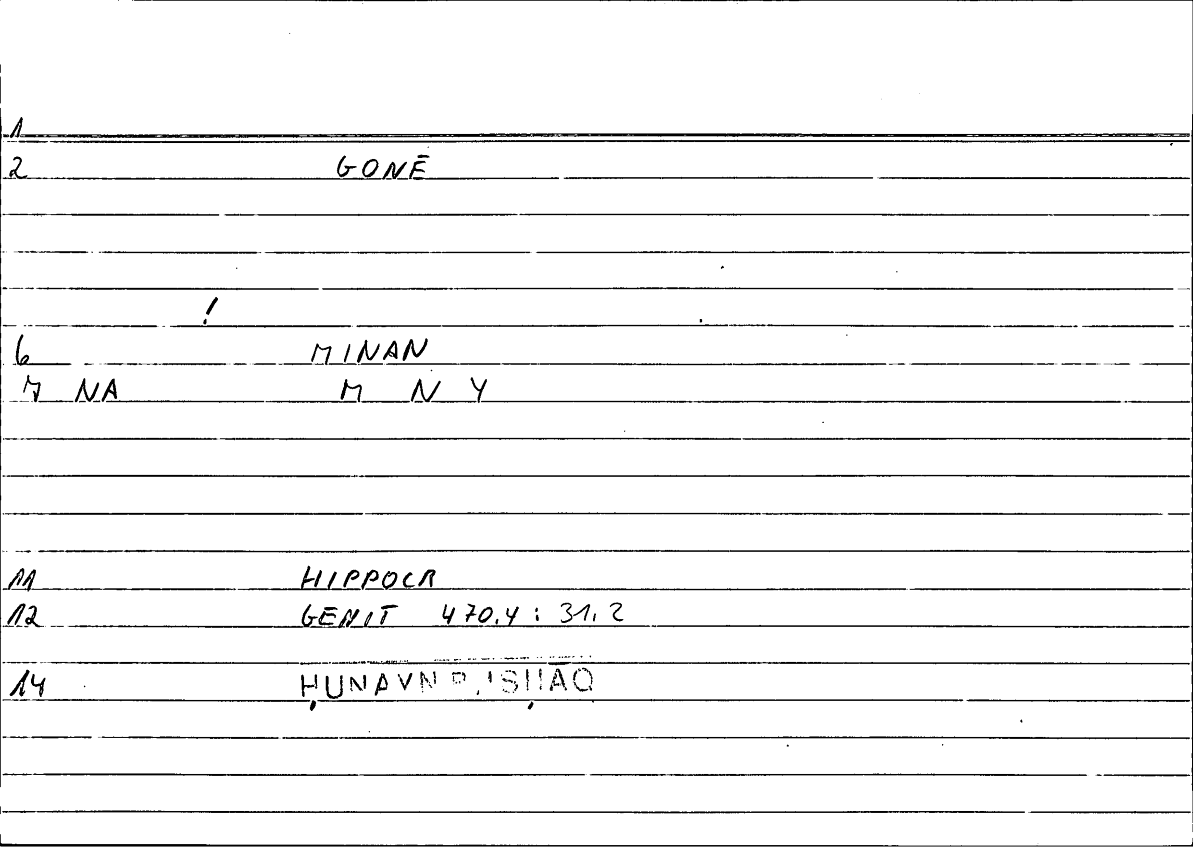 1
2 GONĒ
!
6 MINAN
7 NA M N Y
11 HIPPOCR
12 GENIT 470.4 : 31.2
14 ḤUNAYN B. ISḤĀQ